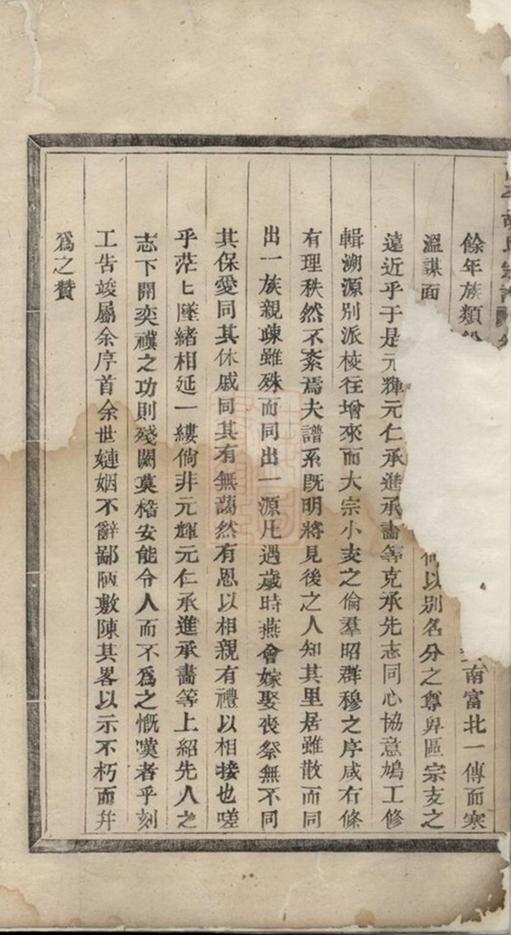 餘年族類
南富北一傳而寒
溫謀面
何以别名分之尊卑區宗支之
遠近乎于是元輝元仁承進承畵等克承先志同心協意鳩工修
輯溯源别派按徃增來而大宗小支之倫羣昭群穆之序咸有條
有理秩然不紊焉夫譜系既明將見後之人知其里居雖散而同
出一族親疎雖殊而同出一源凡遇歲時燕會嫁娶丧祭無不同
其保愛同其休戚同其有無藹然有恩以相親有禮以相接也嗟
乎茫匕墜緒相延一縷倘非元輝元仁承進承畵等上紹先人之
志下開奕禩之功則殘闕莫稽安能令人而不爲之慨嘆者乎刻
工告竣屬余序首余世婕姻不辭鄙陋敷陳其畧以示不朽而幷
爲之賛